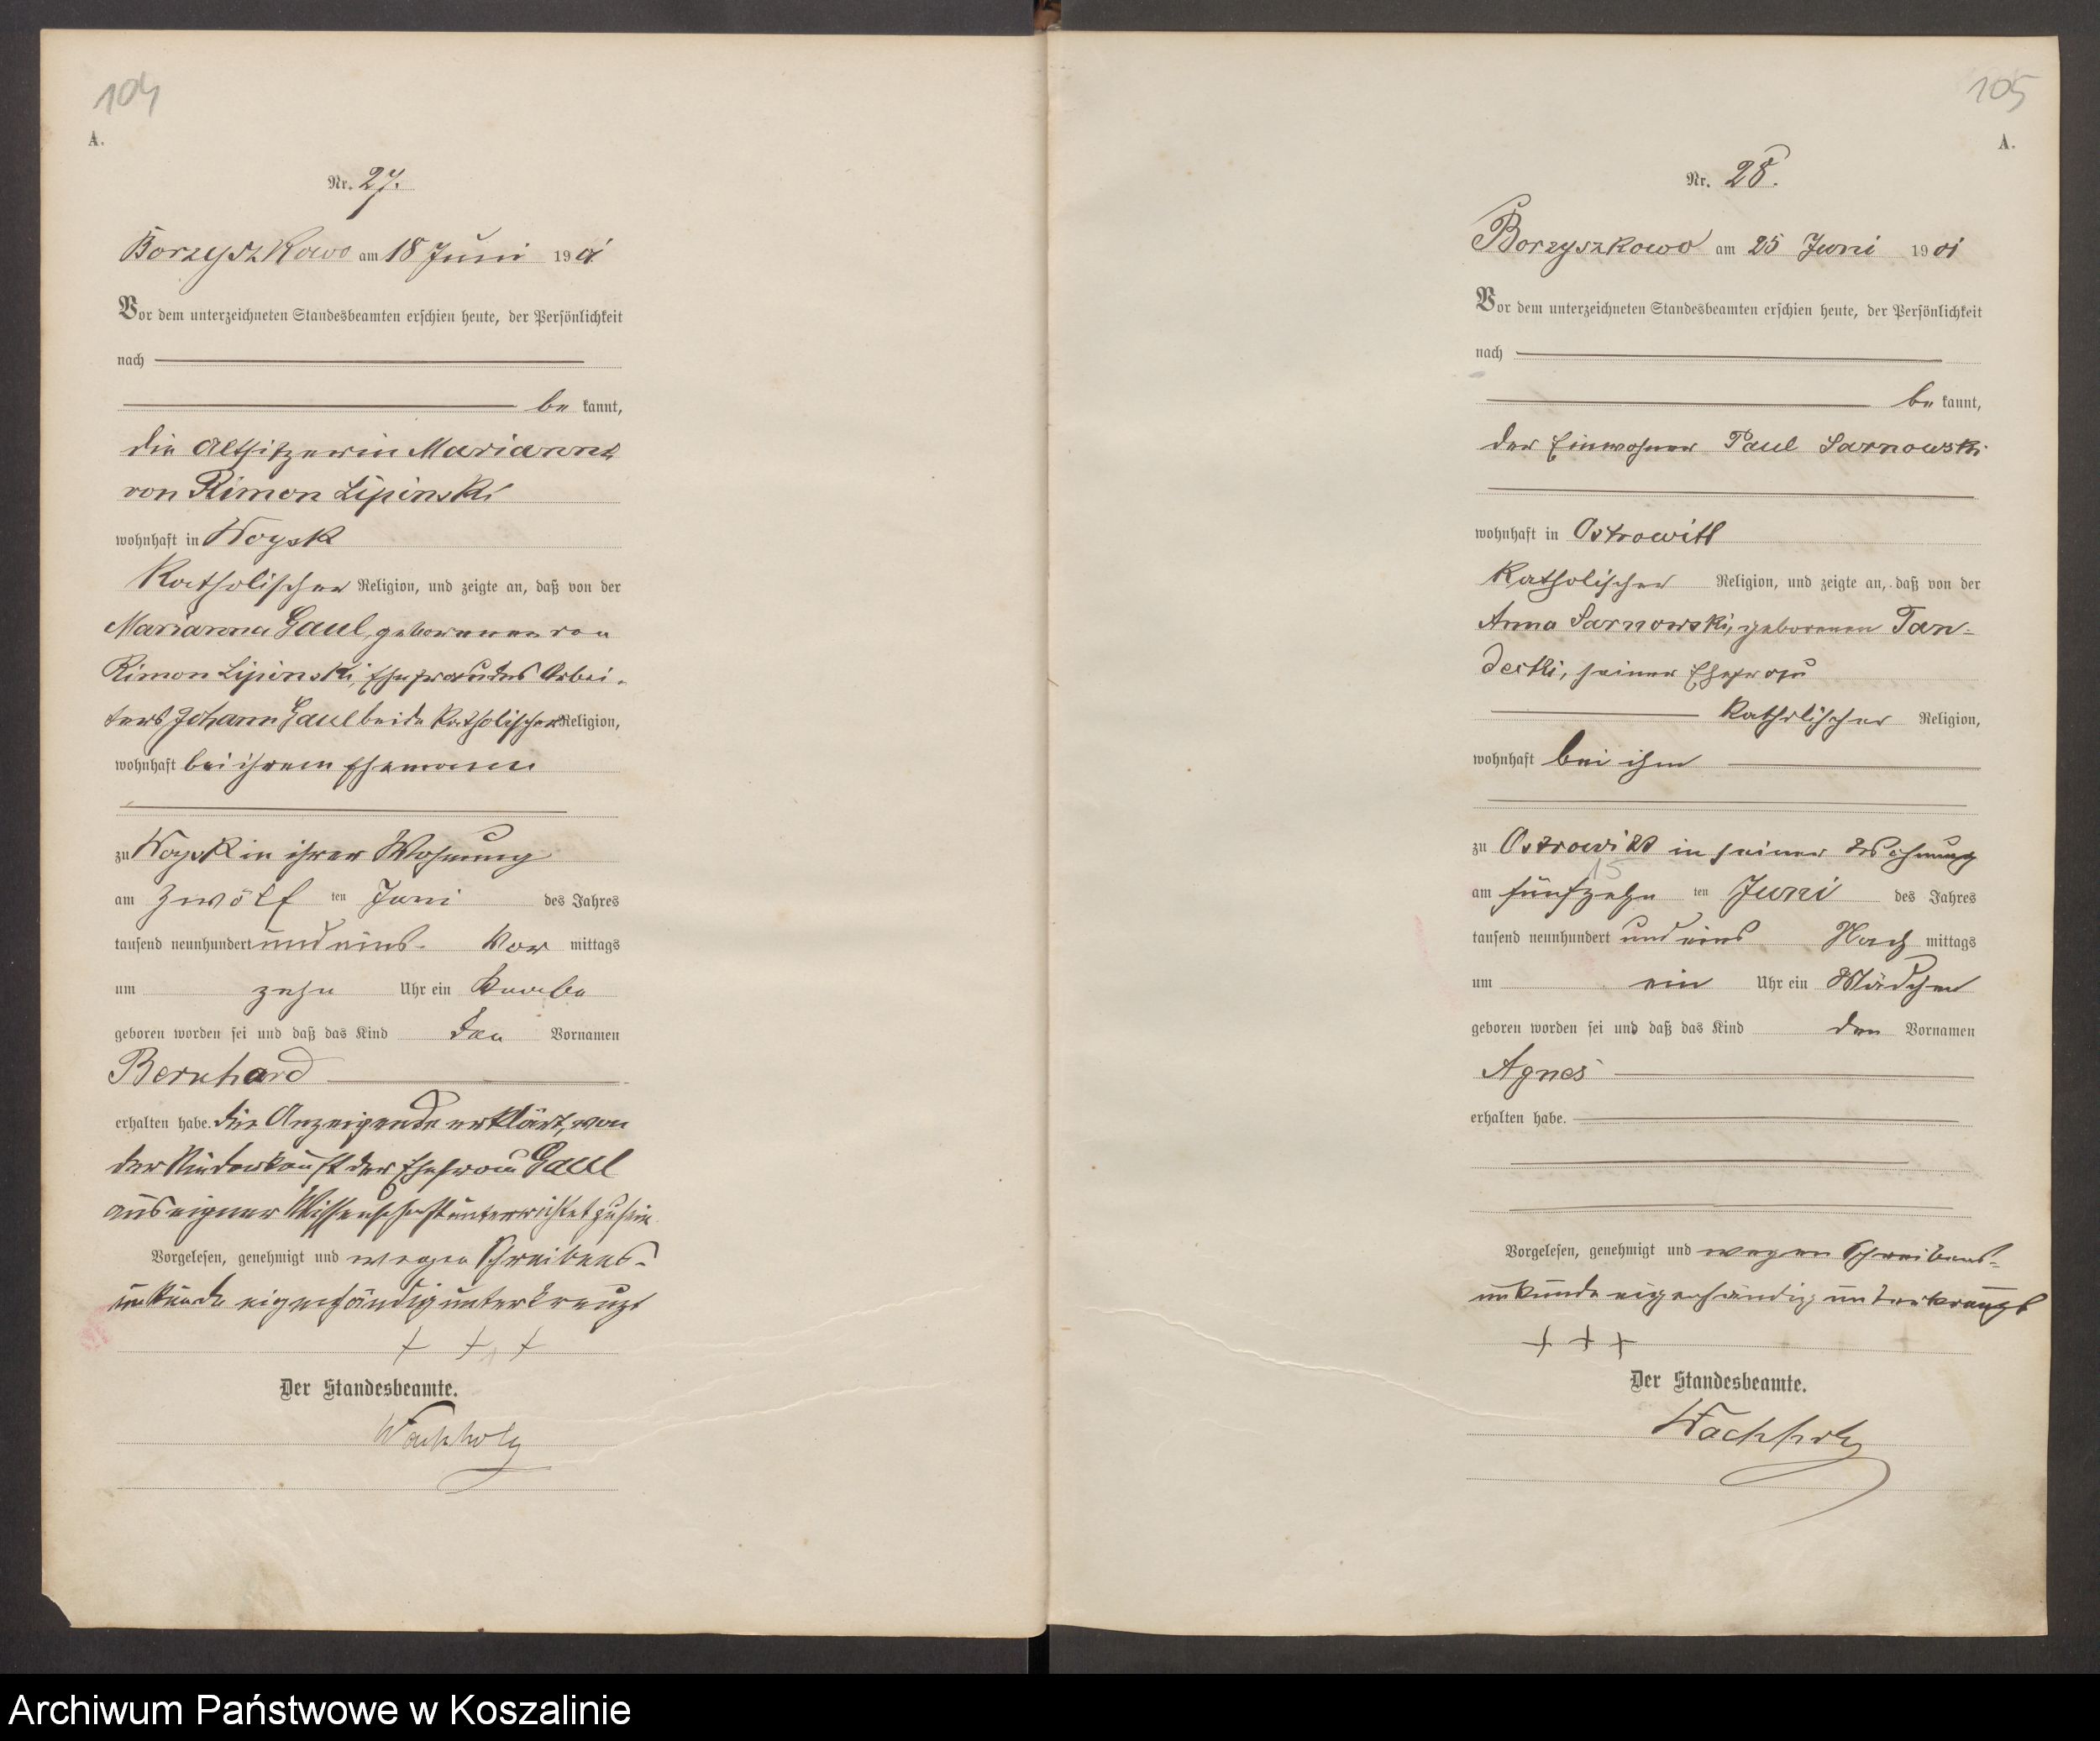 104
A.
Nr. 27.
Borzyszkowo am 18 Juni 1901
Vor dem unterzeichneten Standesbeamten erschien heute, der Persönlichkeit
nach
be kannt,
die Altsitzerin Marianna
von Rimon Lipinski
wohnhaft in Woysk
Katholischer Religion, und zeigte an, daß von der
Marianna Gaul, geborenen von
Rimon Lipinski, Ehefrau des Arbei-
ters Johann Gaul beide Katholischer Religion,
wohnhaft bei ihrem Ehemann
zu Woysk in ihrer Wohnung
am zwölf ten Juni des Jahres
tausend neunhundert und eins Vor mittags
um zehn Uhr ein Knabe
geboren worden sei und daß das Kind den Vornamen
Bernhard
erhalten habe. Die Anzeigende erklärt, von
der Niederkunft der Ehefrau Gaul
aus eigner Wissenschaft unterrichtet zu sein.
Vorgelesen, genehmigt und wegen Schreibens-
unkunde eigenhändig unterkreuzt
+ + +
Der Standesbeamte.
Wachholz
105
A.
Nr. 28.
Borzyszkowo am 25 Juni 1901
Vor dem unterzeichneten Standesbeamten erschien heute, der Persönlichkeit
nach
be kannt,
der Einwohner Paul Sarnowski
wohnhaft in Ostrowitt
Katholischer Religion, und zeigte an, daß von der
Anna Sarnowski, geborenen Tan-
decki, seiner Ehefrau
Katholischer Religion,
wohnhaft bei ihm
zu Ostrowitt in seiner Wohnung
15
am fünfzehn ten Juni des Jahres
tausend neunhundert und eins Nach mittags
um ein Uhr ein Mädchen
geboren worden sei und daß das Kind den Vornamen
Agnes
erhalten habe.
Vorgelesen, genehmigt und wegen Schreibens-
unkunde eigenhändig unterkreuzt
+ + +
Der Standesbeamte.
Wachholz
Archiwum Państwowe w Koszalinie